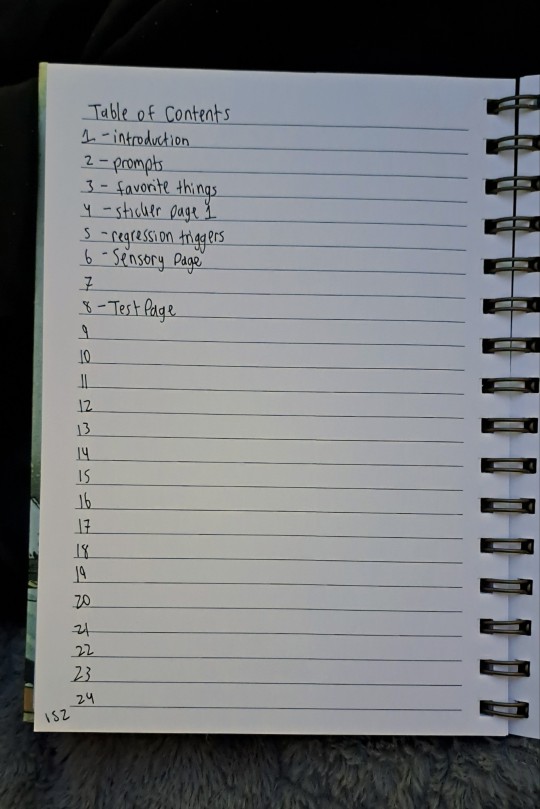 Table of Contents
1 - introduction
2 - prompts
3 - favorite things
4 - sticker page 1
5 - regression triggers
6 - Sensory Page
7
8 - Test Page
9
10
11
12
13
14
15
16
17
18
19
20
21
22
23
24
152